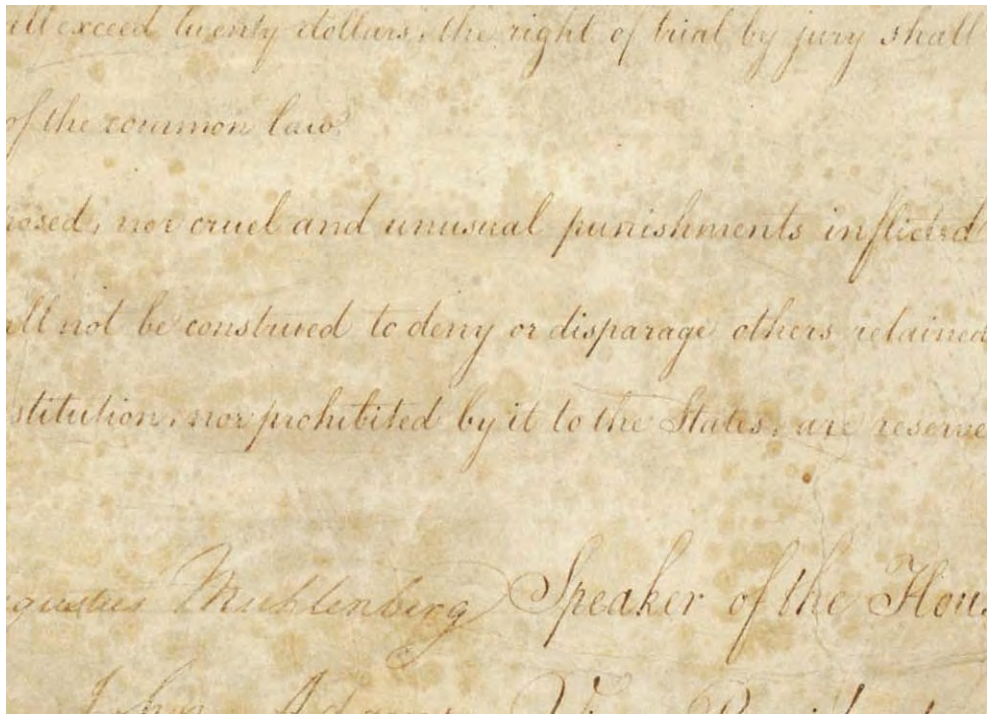 all exceed twenty dollars, the right of trial by jury shall
of the common law.
posed, nor cruel and unusual punishments inflicted
all not be construed to deny or disparage others retained
stitution, nor prohibited by it to the States, are reserve
gustus Muhlenberg Speaker of the Hous
John Adams, Vice President